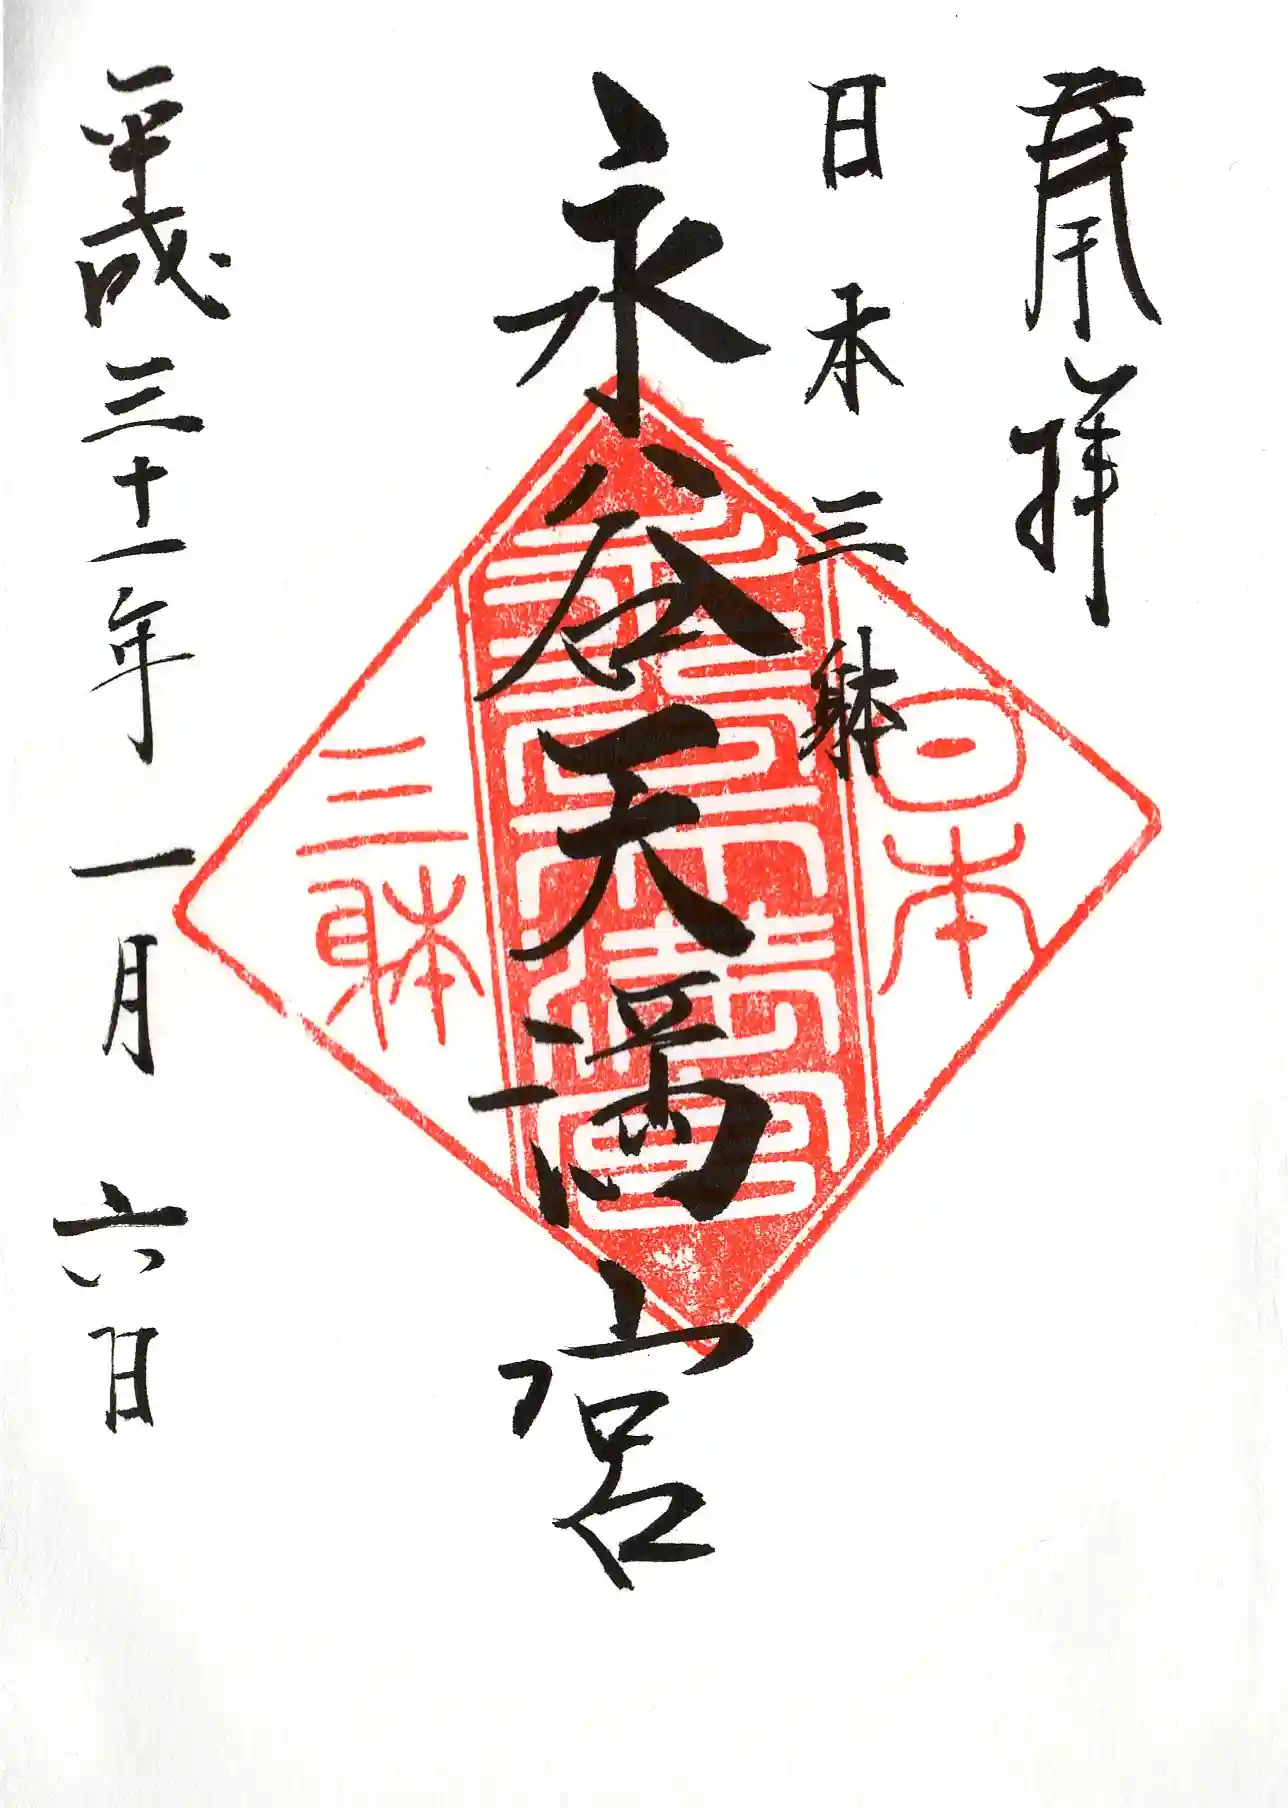 奉拝
日本三躰
永谷天満宮
平成三十一年一月六日
日本
永谷天満宮
三躰